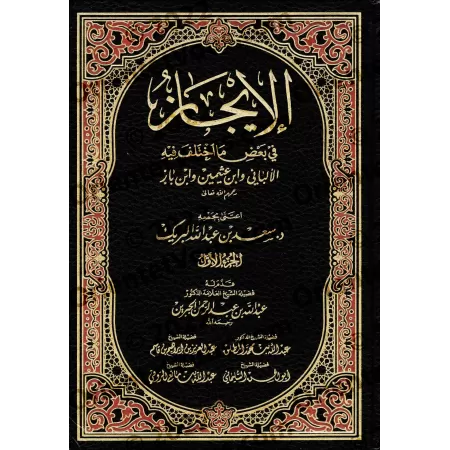 الإيجاز
في بعض ما اختلف فيه
الألباني وابن عثيمين وابن باز
رحمهم الله تعالى
اعتنى بجمعه
د. سعد بن عبد الله البريك
الجزء الأول
قدم له
فضيلة الشيخ العلامة الدكتور
عبد الله بن عبد الرحمن الجبرين
رحمه الله
فضيلة الشيخ الدكتور فضيلة الشيخ
عبد الله بن محمد المطلق عبد العزيز بن إبراهيم بن قاسم
فضيلة الشيخ فضيلة الشيخ
أبو الحسن السليماني عبد الله بن مانع الروقي